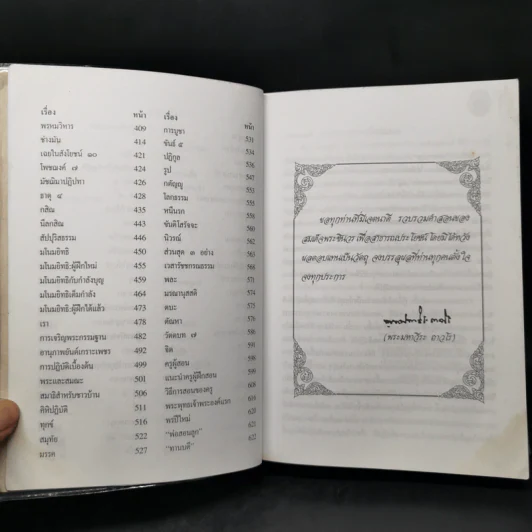 เรื่อง หน้า
พรหมวิหาร 409
ช่างมัน 414
เฉยในสังโยชน์ ๑๐ 421
โพชฌงค์ ๗ 424
มัชฌิมาปฏิปทา 426
ธาตุ ๔ 428
กสิณ 435
นีลกสิณ 443
สัปปุริสธรรม 447
มโนมยิทธิ 450
มโนมยิทธิ:ผู้ฝึกใหม่ 457
มโนมยิทธิกับกำลังบุญ 460
มโนมยิทธิเต็มกำลัง 462
มโนมยิทธิ:ผู้ฝึกได้แล้ว 467
เรา 473
การเจริญพระกรรมฐาน 482
อานุภาพยันต์เกราะเพชร 492
การปฏิบัติเบื้องต้น 497
พระและสมณะ 501
สมาธิสำหรับชาวบ้าน 506
คิหิปฏิบัติ 511
ทุกข์ 516
สมุทัย 522
มรรค 527
เรื่อง หน้า
การบูชา 531
ขันธ์ ๕ 534
ปฏิกูล 536
รูป
กตัญญู
โลกธรรม
หนีนรก
ขันติโสรัจจะ
นิวรณ์
ส่วนสุด ๓ อย่าง
เวสารัชชกรณธรรม
พละ
มรณานุสสติ
ตบะ
ตัณหา
วัตตบท ๗
จิต
ครูผู้สอน
แนะนำครูผู้ฝึกสอน
วิธีการสอนของครู
พระพุทธเจ้าพระองค์แรก
พรปีใหม่ 620
"พ่อสอนลูก" 621
"ทานบดี" 622
ขอทุกท่านที่มีเจตนาดี รวบรวมคำสอนของ
สมเด็จพระชินวร เพื่อสาธารณประโยชน์ โดยมิได้หวัง
ผลตอบแทนเป็นวัตถุ จงบรรลุผลที่ท่านทุกคนตั้งใจ
จงทุกประการ
(พระมหาวีระ ถาวโร)